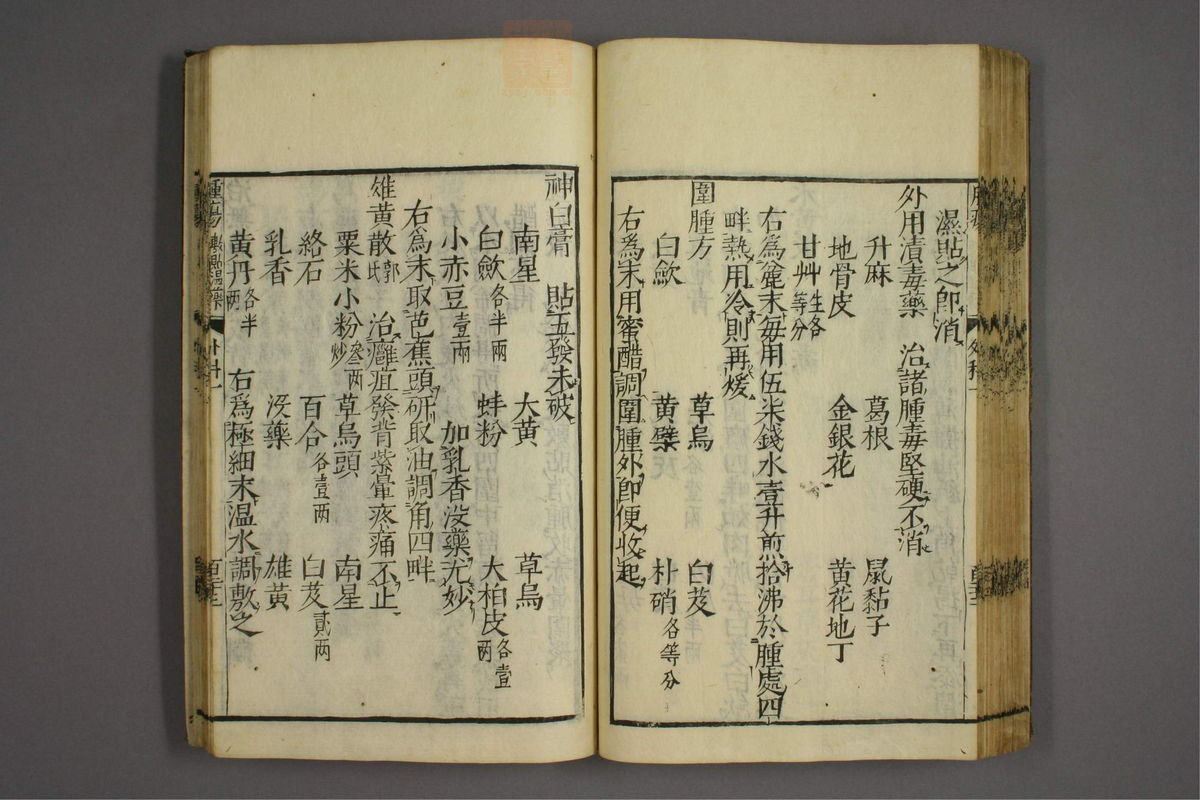 濕貼之即消
外用漬毒藥　治諸腫毒堅硬不消
升麻　葛根　鼠黏子
地骨皮　金銀花　黃花地丁
甘艸生各等分
右爲麄末每用伍柒錢水壹升煎拾沸於腫處四
畔熱用冷則再煖
圍腫方
白歛　草烏　白芨
白歛　黃蘗　朴硝各等分
右爲末用蜜醋調圍腫外即便收起
神白膏　貼五發未破
南星　大黃　草烏
白歛各半兩　蚌粉　大柏皮各壹兩
小赤豆壹兩　加乳香没藥尤妙
右爲末取芭蕉頭研取油調角四畔
雄黃散郭氏　治癰疽發背紫暈疼痛不止
粟米小粉炒叁兩　草烏頭　南星
絡石　百合各壹兩　白芨貳兩
乳香　没藥　雄黃
黃丹各半兩　右爲極細末温水調敷之
腫瘍敷貼湯藥　外科一